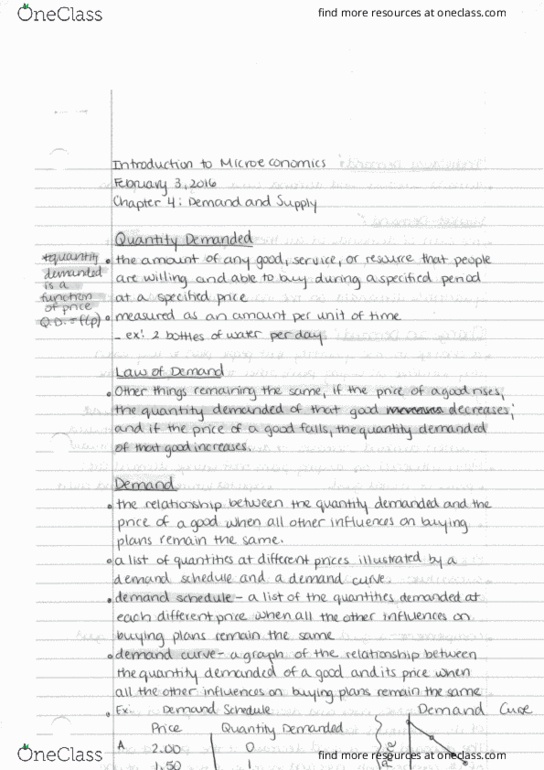 OneClass
find more resources at oneclass.com
Introduction to Microeconomics
February 3, 2016
Chapter 4: Demand and Supply
Quantity Demanded
*quantity
demanded
is a
function
of price
Q.D. = f(p)
• the amount of any good, service, or resource that people
are willing and able to buy during a specified period
at a specified price
• measured as an amount per unit of time
- ex: 2 bottles of water per day
Law of Demand
• Other things remaining the same, if the price of a good rises,
the quantity demanded of that good decreases;
and if the price of a good falls, the quantity demanded
of that good increases.
Demand
• the relationship between the quantity demanded and the
price of a good when all other influences on buying
plans remain the same.
• a list of quantities at different prices illustrated by a
demand schedule and a demand curve.
• demand schedule - a list of the quantities demanded at
each different price when all the other influences on
buying plans remain the same
• demand curve - a graph of the relationship between
the quantity demanded of a good and its price when
all the other influences on buying plans remain the same
• Ex: Demand Schedule Demand Curve
Price Quantity Demanded
A. 2.00 0
1.50 1
OneClass
find more resources at oneclass.com